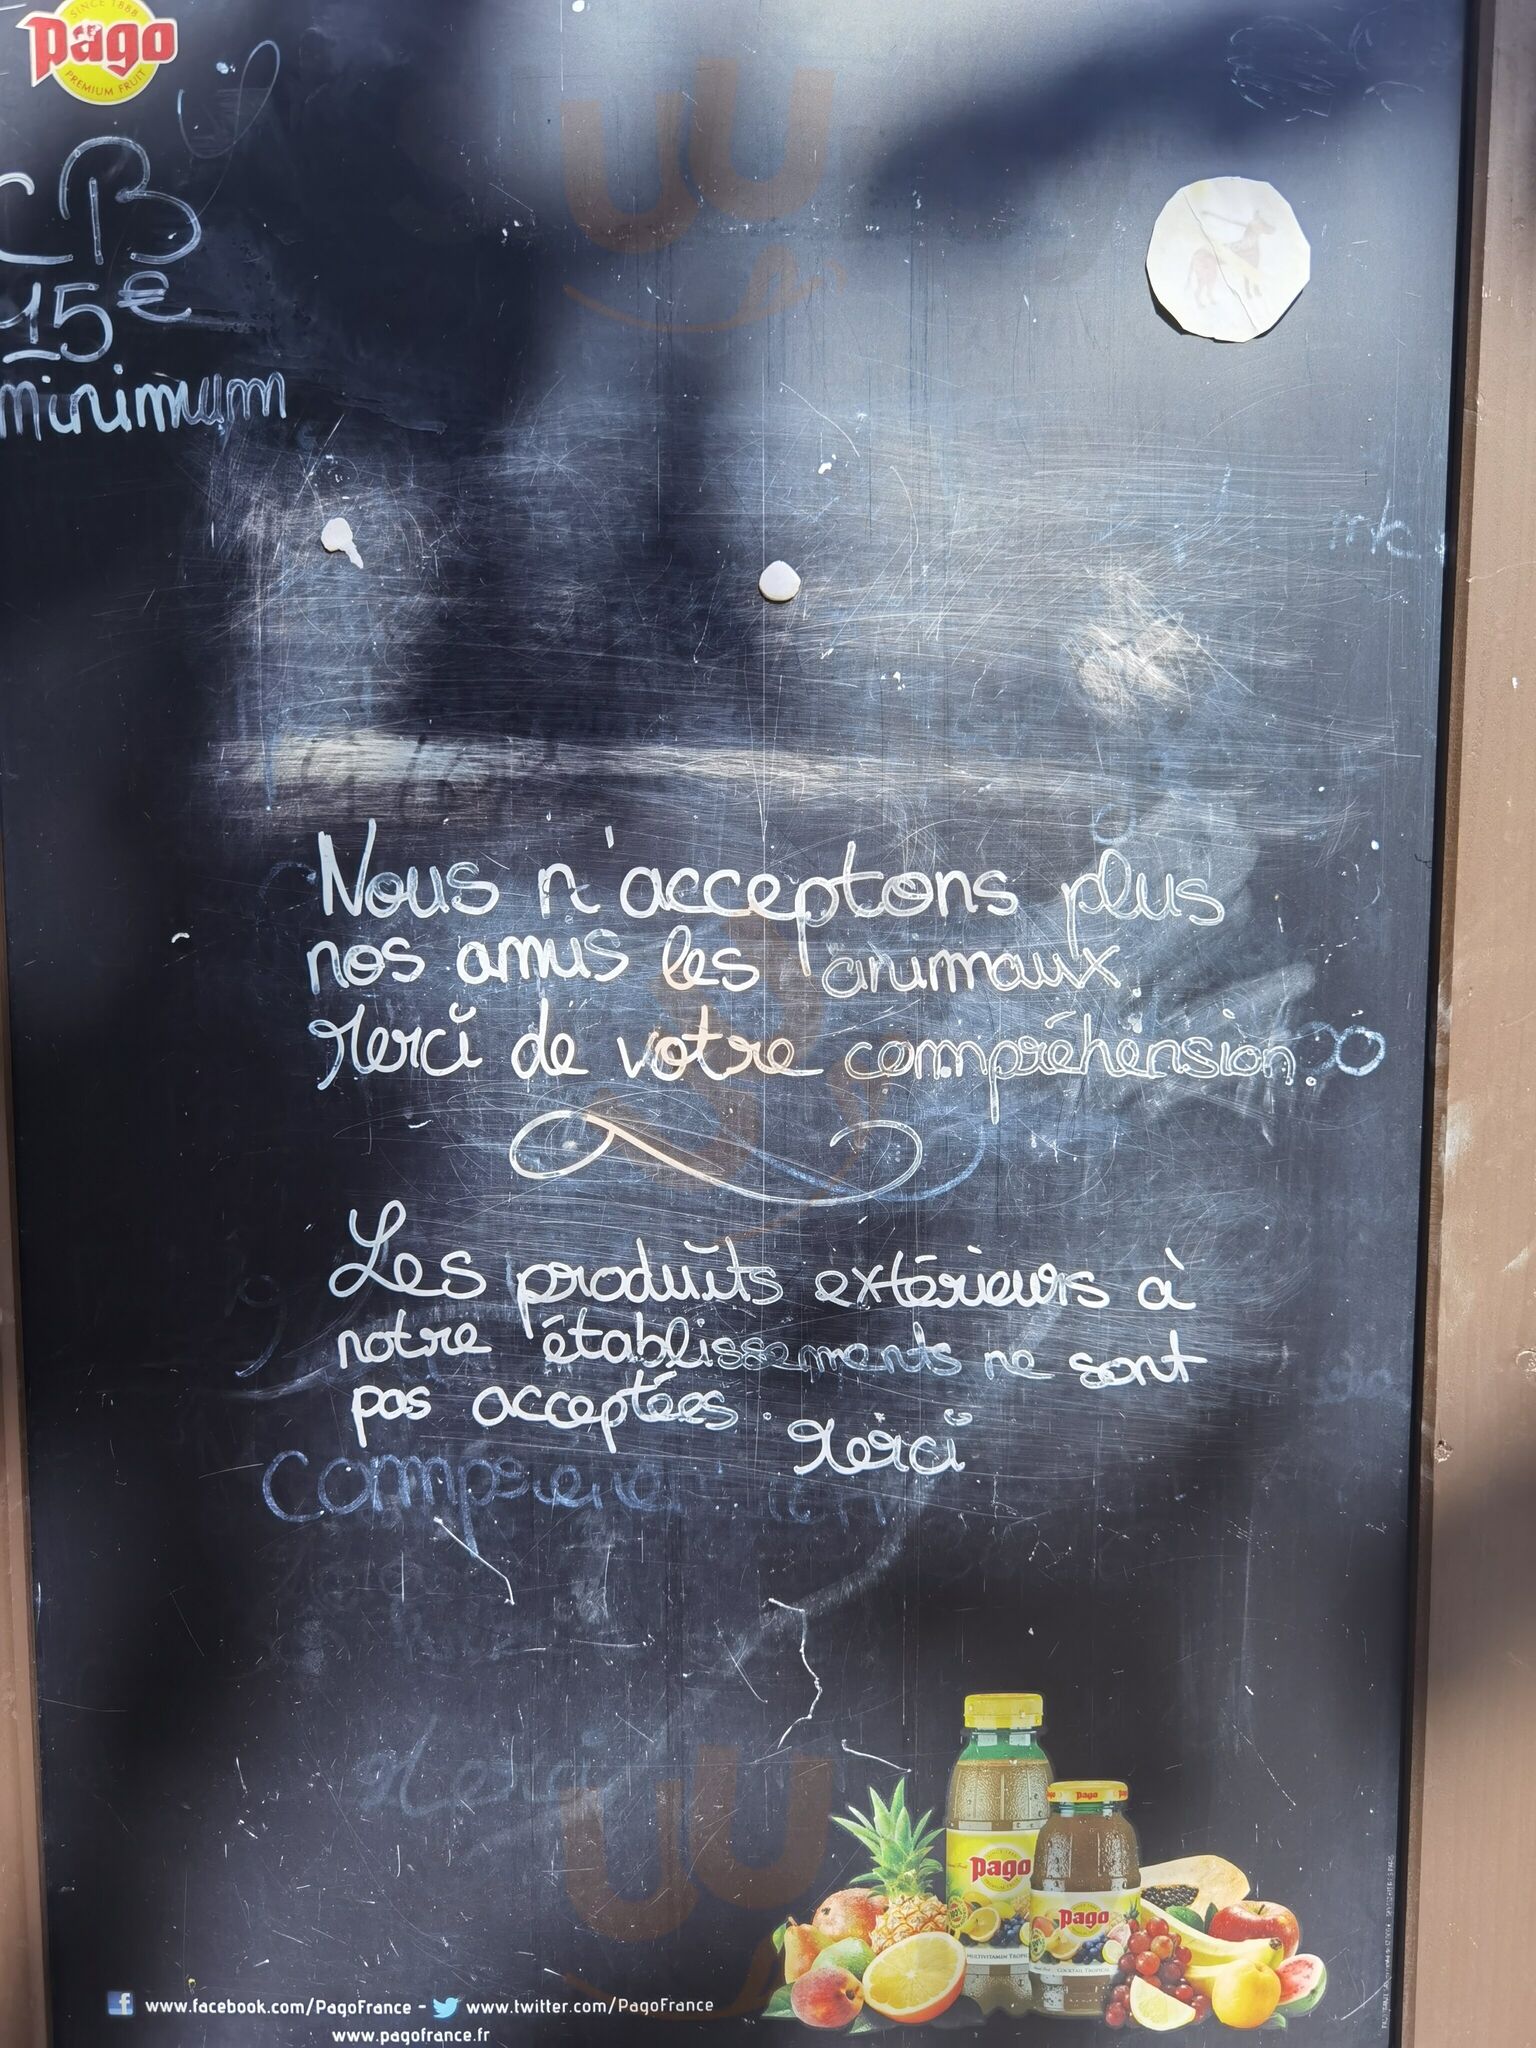 SINCE 1888
Pago
PREMIUM FRUIT
CB
15€
minimum
Nous n'acceptons plus
nos amis les animaux
Merci de votre compréhension.
Les produits extérieurs à
notre établissements ne sont
pas acceptées. Merci
Merci
Pago
Pago
Pago
MULTIVITAMIN TROPIC
COCKTAIL TROPICAL
www.facebook.com/PagoFrance - www.twitter.com/PagoFrance
www.pagofrance.fr